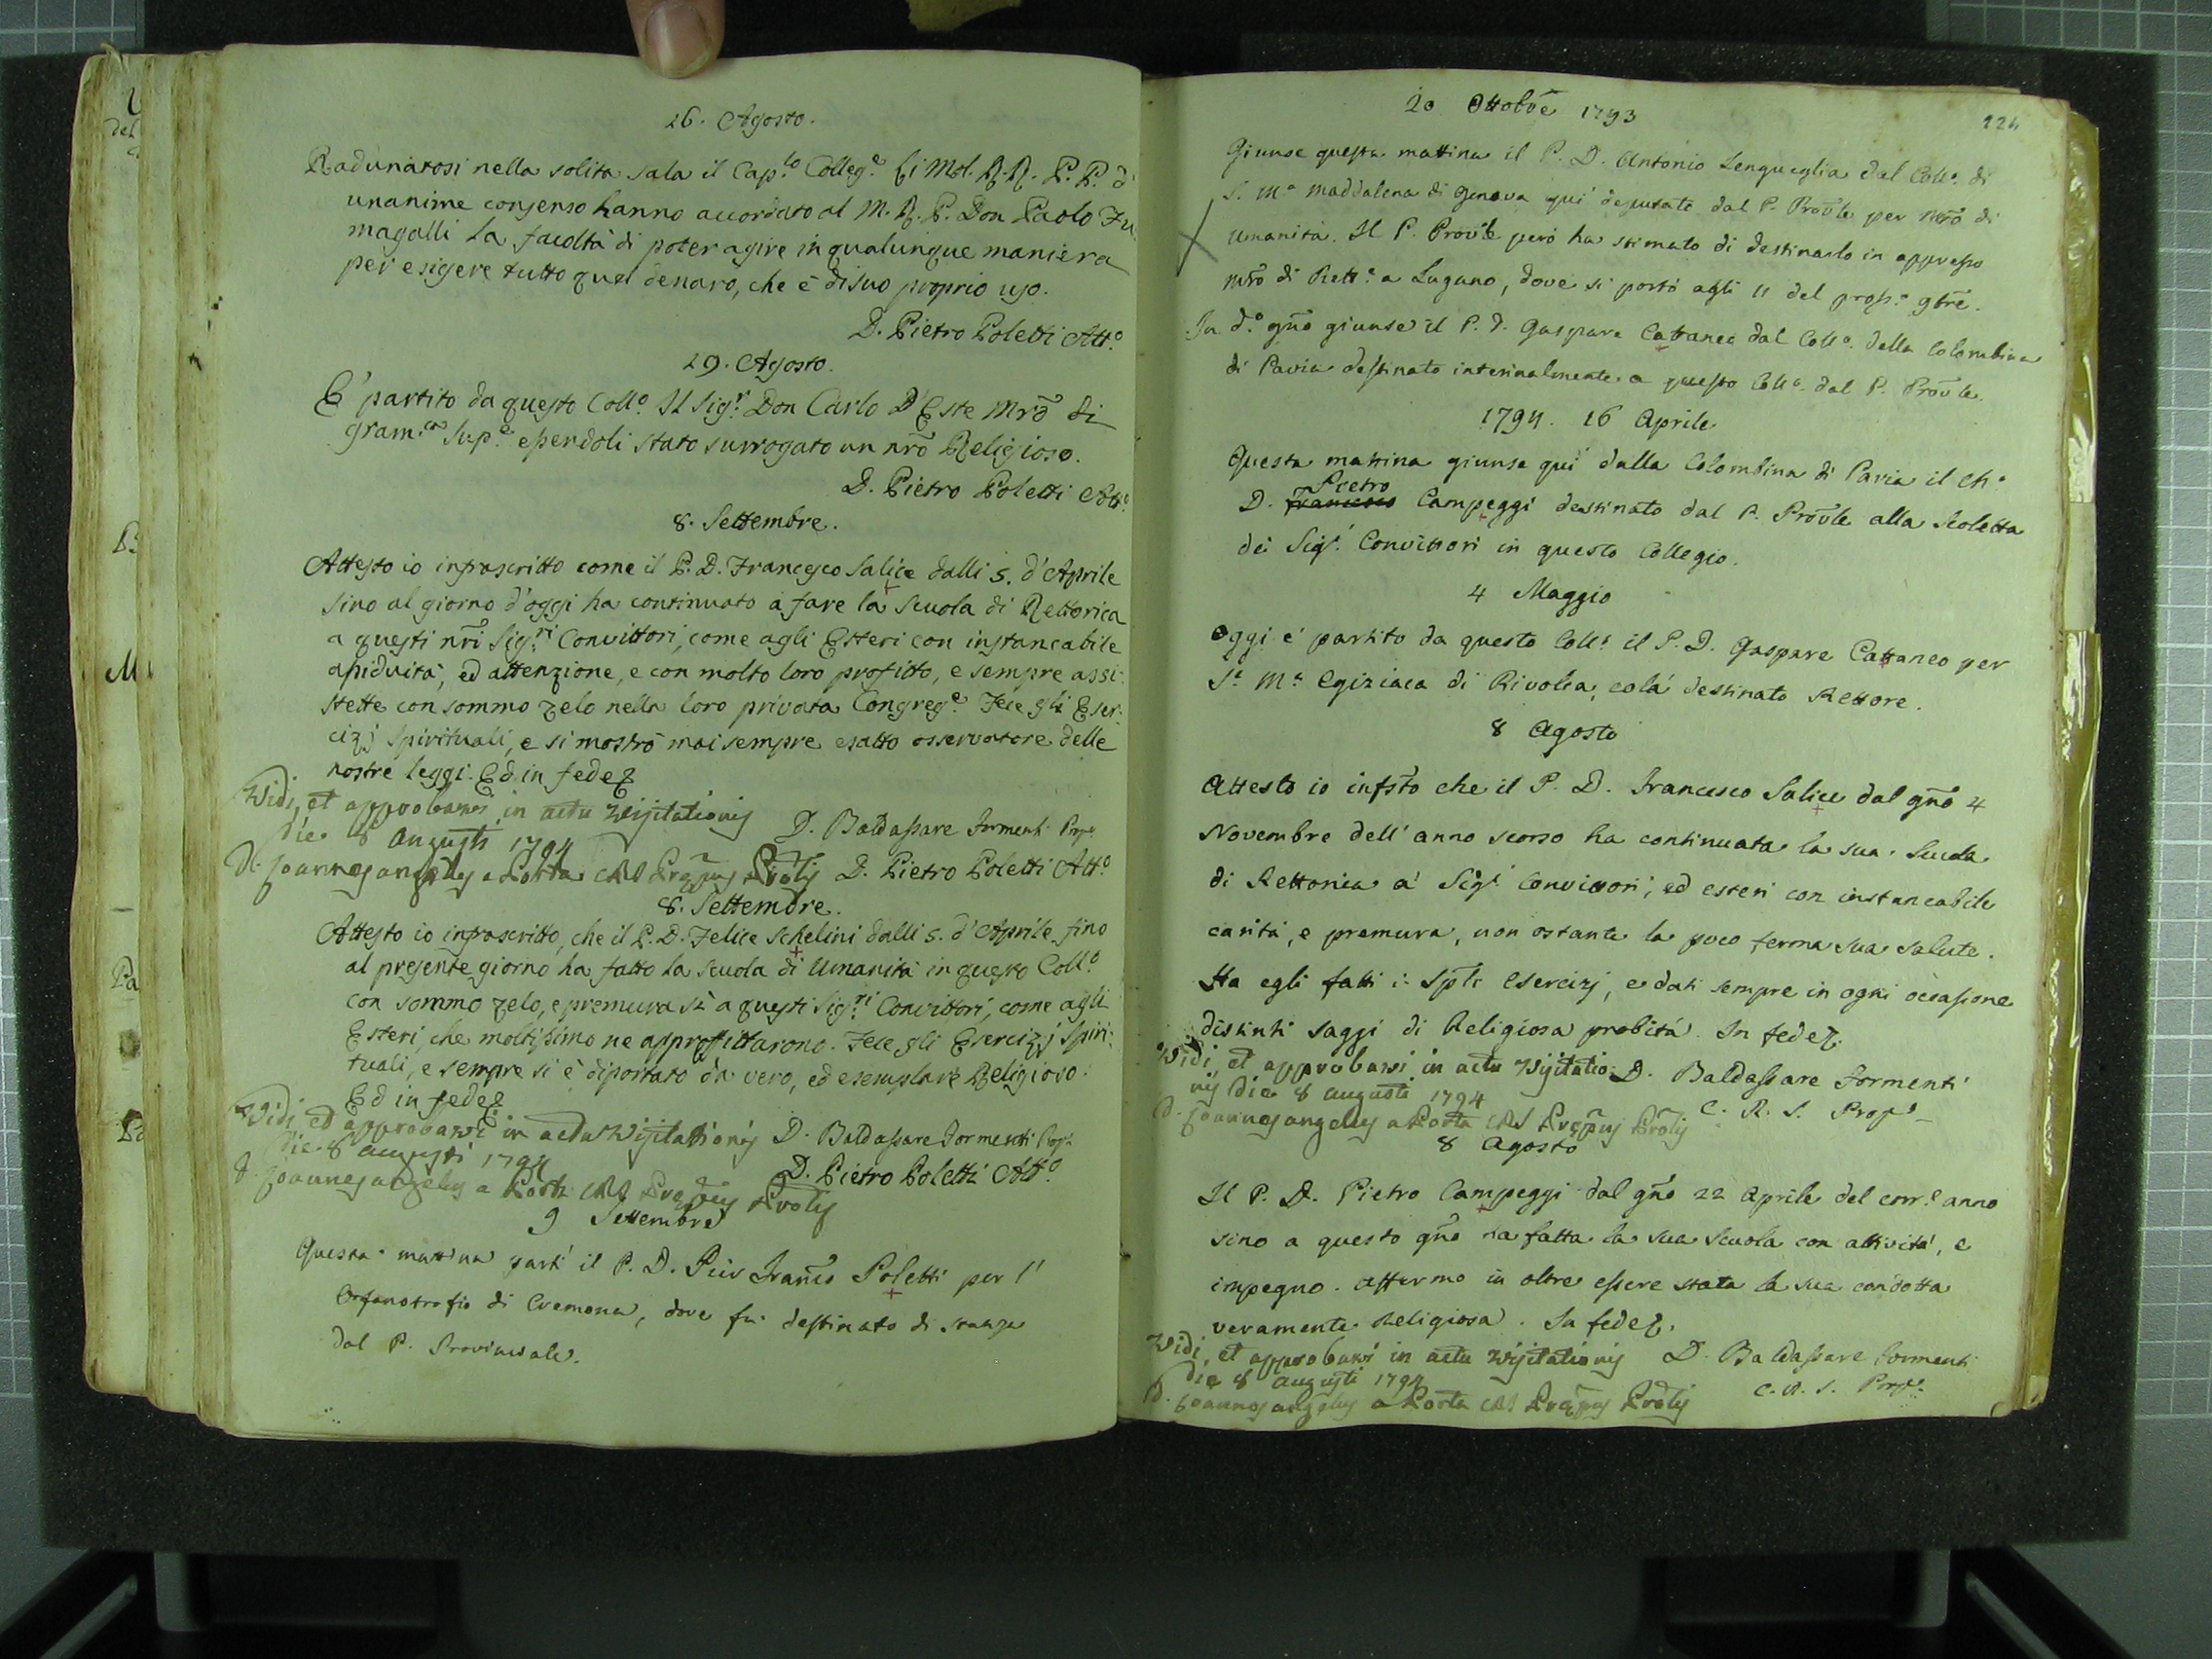 26. Agosto.
Radunatosi nella solita sala il Cap.lo Colleg.e li Mol. R.R. P.P. d'
unanime consenso hanno accordato al M. R. P. Don Paolo Fu
magalli la facoltà di poter agire in qualunque maniera
per esigere tutto quel denaro, che è di suo proprio uso.
D. Pietro Poletti Att.o
29. Agosto.
E' partito da questo Coll.o Il Sig.r Don Carlo D'Este Mrõ di
gram.ca Sup.e essendoli stato surrogato un nrõ Religioso.
D. Pietro Poletti Att.o
8. Settembre.
Attesto io infrascritto come il P. D. Francesco Salice dalli 5. d'Aprile
sino al giorno d'oggi ha continuato a fare la Scuola di Rettorica
a questi nri Sig.ri Convittori, come agli Esteri con instancabile
assiduità, ed attenzione, e con molto loro profitto, e sempre assi-
stette con sommo zelo nella loro privata Congreg.e Fece gli Eser-
cizj Spirituali, e si mostrò mai sempre esatto osservatore delle
nostre leggi. Ed in fede
Vidi, et approbavi in actu visitationis
die 8 Augusti 1794
D. Baldassare Formenti Prep.o
D. Joannes Angelus a Porta CRS Prœpus Prõlis D. Pietro Poletti Att.o
8. Settembre.
Attesto io infrascritto, che il P. D. Felice Schelini dalli 5. d'Aprile fino
al presente giorno ha fatto la Scuola di Umanità in questo Coll.o
con sommo zelo, e premura sì a questi Sig.ri Convittori, come agli
Esteri, che moltissimo ne approfittarono. Fece gli Esercizj Spiri-
tuali, e sempre si è diportato da vero, ed esemplare Religioso.
Ed in fede
Vidi, et approbavi in actu visitationis D. Baldassare Formenti Prep.o
die 8 Augusti 1794
D. Pietro Poletti Att.o
D. Joannes Angelus a Porta CRS Prœpus Prõlis
9 Settembre
Questa mattina partì il P. D. Pier Franco Poletti per l'
Orfanotrofio di Cremona, dove fu destinato di stanza
dal P. Provinciale.
20 Ottobre 1793
124
Giunse questa mattina il P. D. Antonio Lengueglia dal Coll.o di
S. M.a Maddalena di Genova qui deputato dal P. Prõvle per Mrõ di
Umanità. Il P. Prõvle però ha stimato di destinarlo in appresso
Mrõ di Rett.a a Lugano, dove si portò agli 11 del pross.o 9bre.
In d.o gno giunse il P. D. Gaspare Cattaneo dal Coll.o della Colombina
di Pavia destinato interinalmente a questo Coll.o dal P. Prõvle.
1794. 16 Aprile
Questa mattina giunse qui dalla Colombina di Pavia il Ch.o
Pietro
D. Francesco Campeggi destinato dal P. Prõvle alla Scoletta
dei Sig.i Convittori in questo Collegio.
4 Maggio
Oggi è partito da questo Coll.o il P. D. Gaspare Cattaneo per
S.a M.a Egiziaca di Rivolta, colà destinato Rettore.
8 Agosto
Attesto io infsto che il P. D. Francesco Salice dal gno 4
Novembre dell'anno scorso ha continuata la sua Scuola
di Rettorica a' Sig.i Convittori, ed esteri con instancabile
carità, e premura, non ostante la poco ferma sua salute.
Ha egli fatti i Spli Esercizj, e dati sempre in ogni occasione
distinti saggi di Religiosa probità. In fede
Vidi, et approbavi in actu visitatio- D. Baldassare Formenti
nis die 8 Augusti 1794
C. R. S. Prep.o
D. Joannes Angelus a Porta CRS Prœpus Prõlis
8 Agosto
Il P. D. Pietro Campeggi dal gno 22 Aprile del corr.e anno
sino a questo gno ha fatta la sua scuola con attività, e
impegno. Affermo in oltre essere stata la sua condotta
veramente Religiosa. In fede
Vidi, et approbavi in actu visitationis D. Baldassare Formenti
die 8 Augusti 1794
C. R. S. Prep.o
D. Joannes Angelus a Porta CRS Prœpus Prõlis